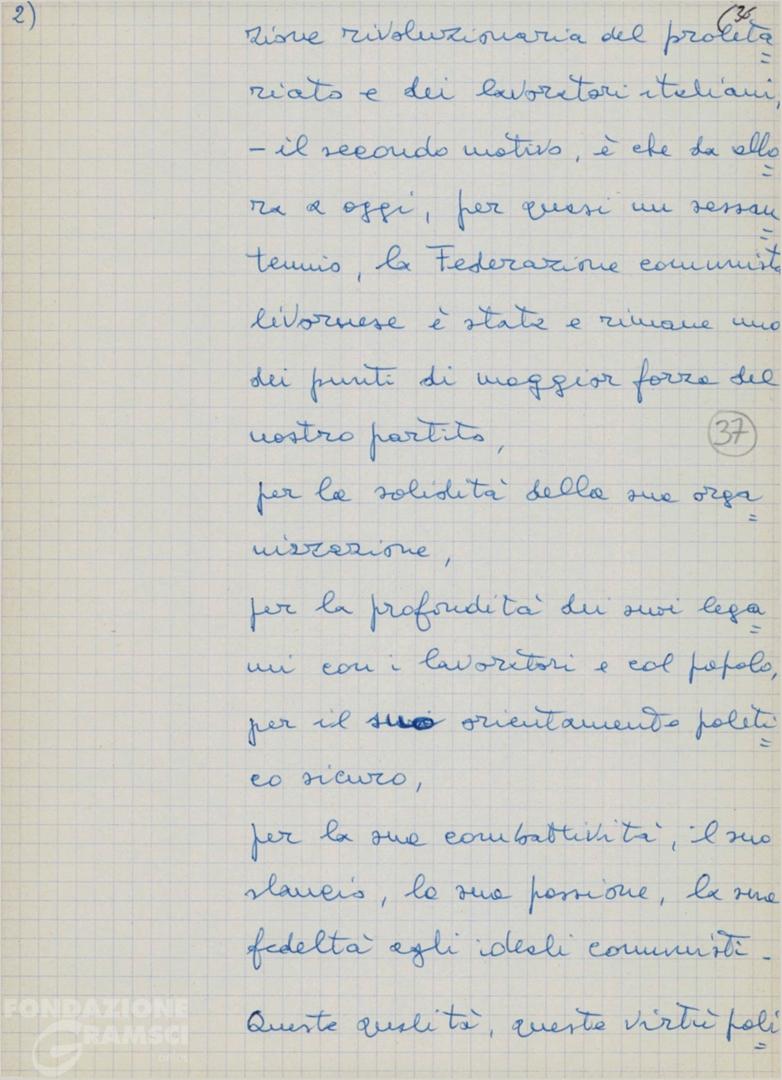 2)
36
zione rivoluzionaria del proleta=
riato e dei lavoratori italiani,
- il secondo motivo, è che da allo=
ra a oggi, per quasi un sessan=
tennio, la Federazione comunista
livornese è stata e rimane uno
dei punti di maggior forza del
nostro partito,
37
per la solidità della sua orga=
nizzazione,
per la profondità dei suoi lega=
mi con i lavoratori e col popolo,
per il suo orientamento politi=
co sicuro,
per la sua combattività, il suo
slancio, la sua passione, la sua
fedeltà agli ideali comunisti.
Queste qualità, queste virtù poli=
FONDAZIONE
GRAMSCI
onlus